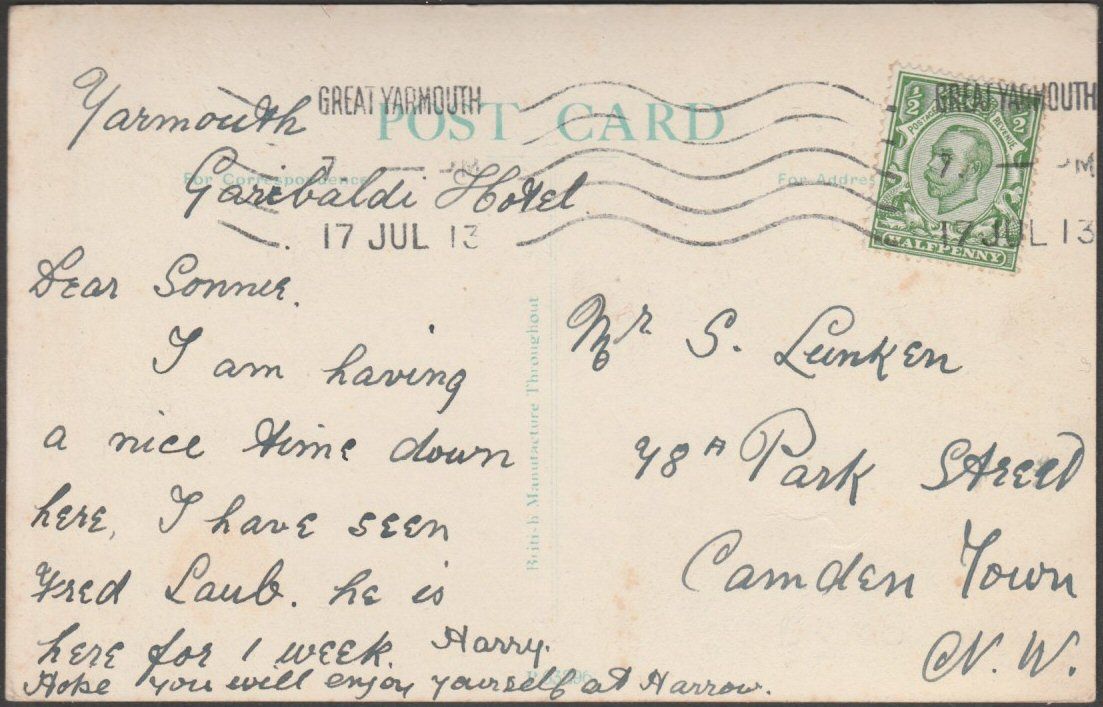 GREAT YARMOUTH
POST CARD
GREAT YARMOUTH
Yarmouth
For Correspondence
7 PM
For Address
7 PM
Garibaldi Hotel
17 JUL 13
17 JUL 13
½ ½
POSTAGE REVENUE
HALFPENNY
Dear Sonnie.
I am having
a nice time down
here, I have seen
Fred Laub. he is
here for 1 week. Harry.
Hope you will enjoy yourself at Harrow.
British Manufacture Throughout
Mr S. Lunken
78A Park Street
Camden Town
N.W.